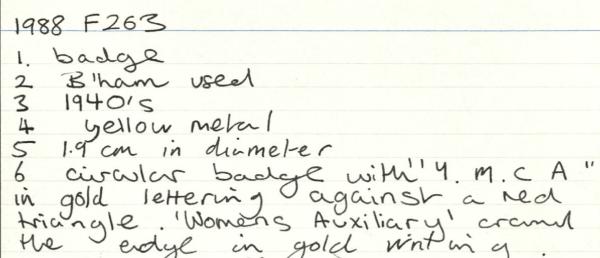 1988 F263
1. badge
2 B'ham used
3 1940's
4 yellow metal
5 1.9 cm in diameter
6 circular badge with "Y. M. C A"
in gold lettering against a red
triangle. 'Womens Auxiliary' around
the edge in gold writing.